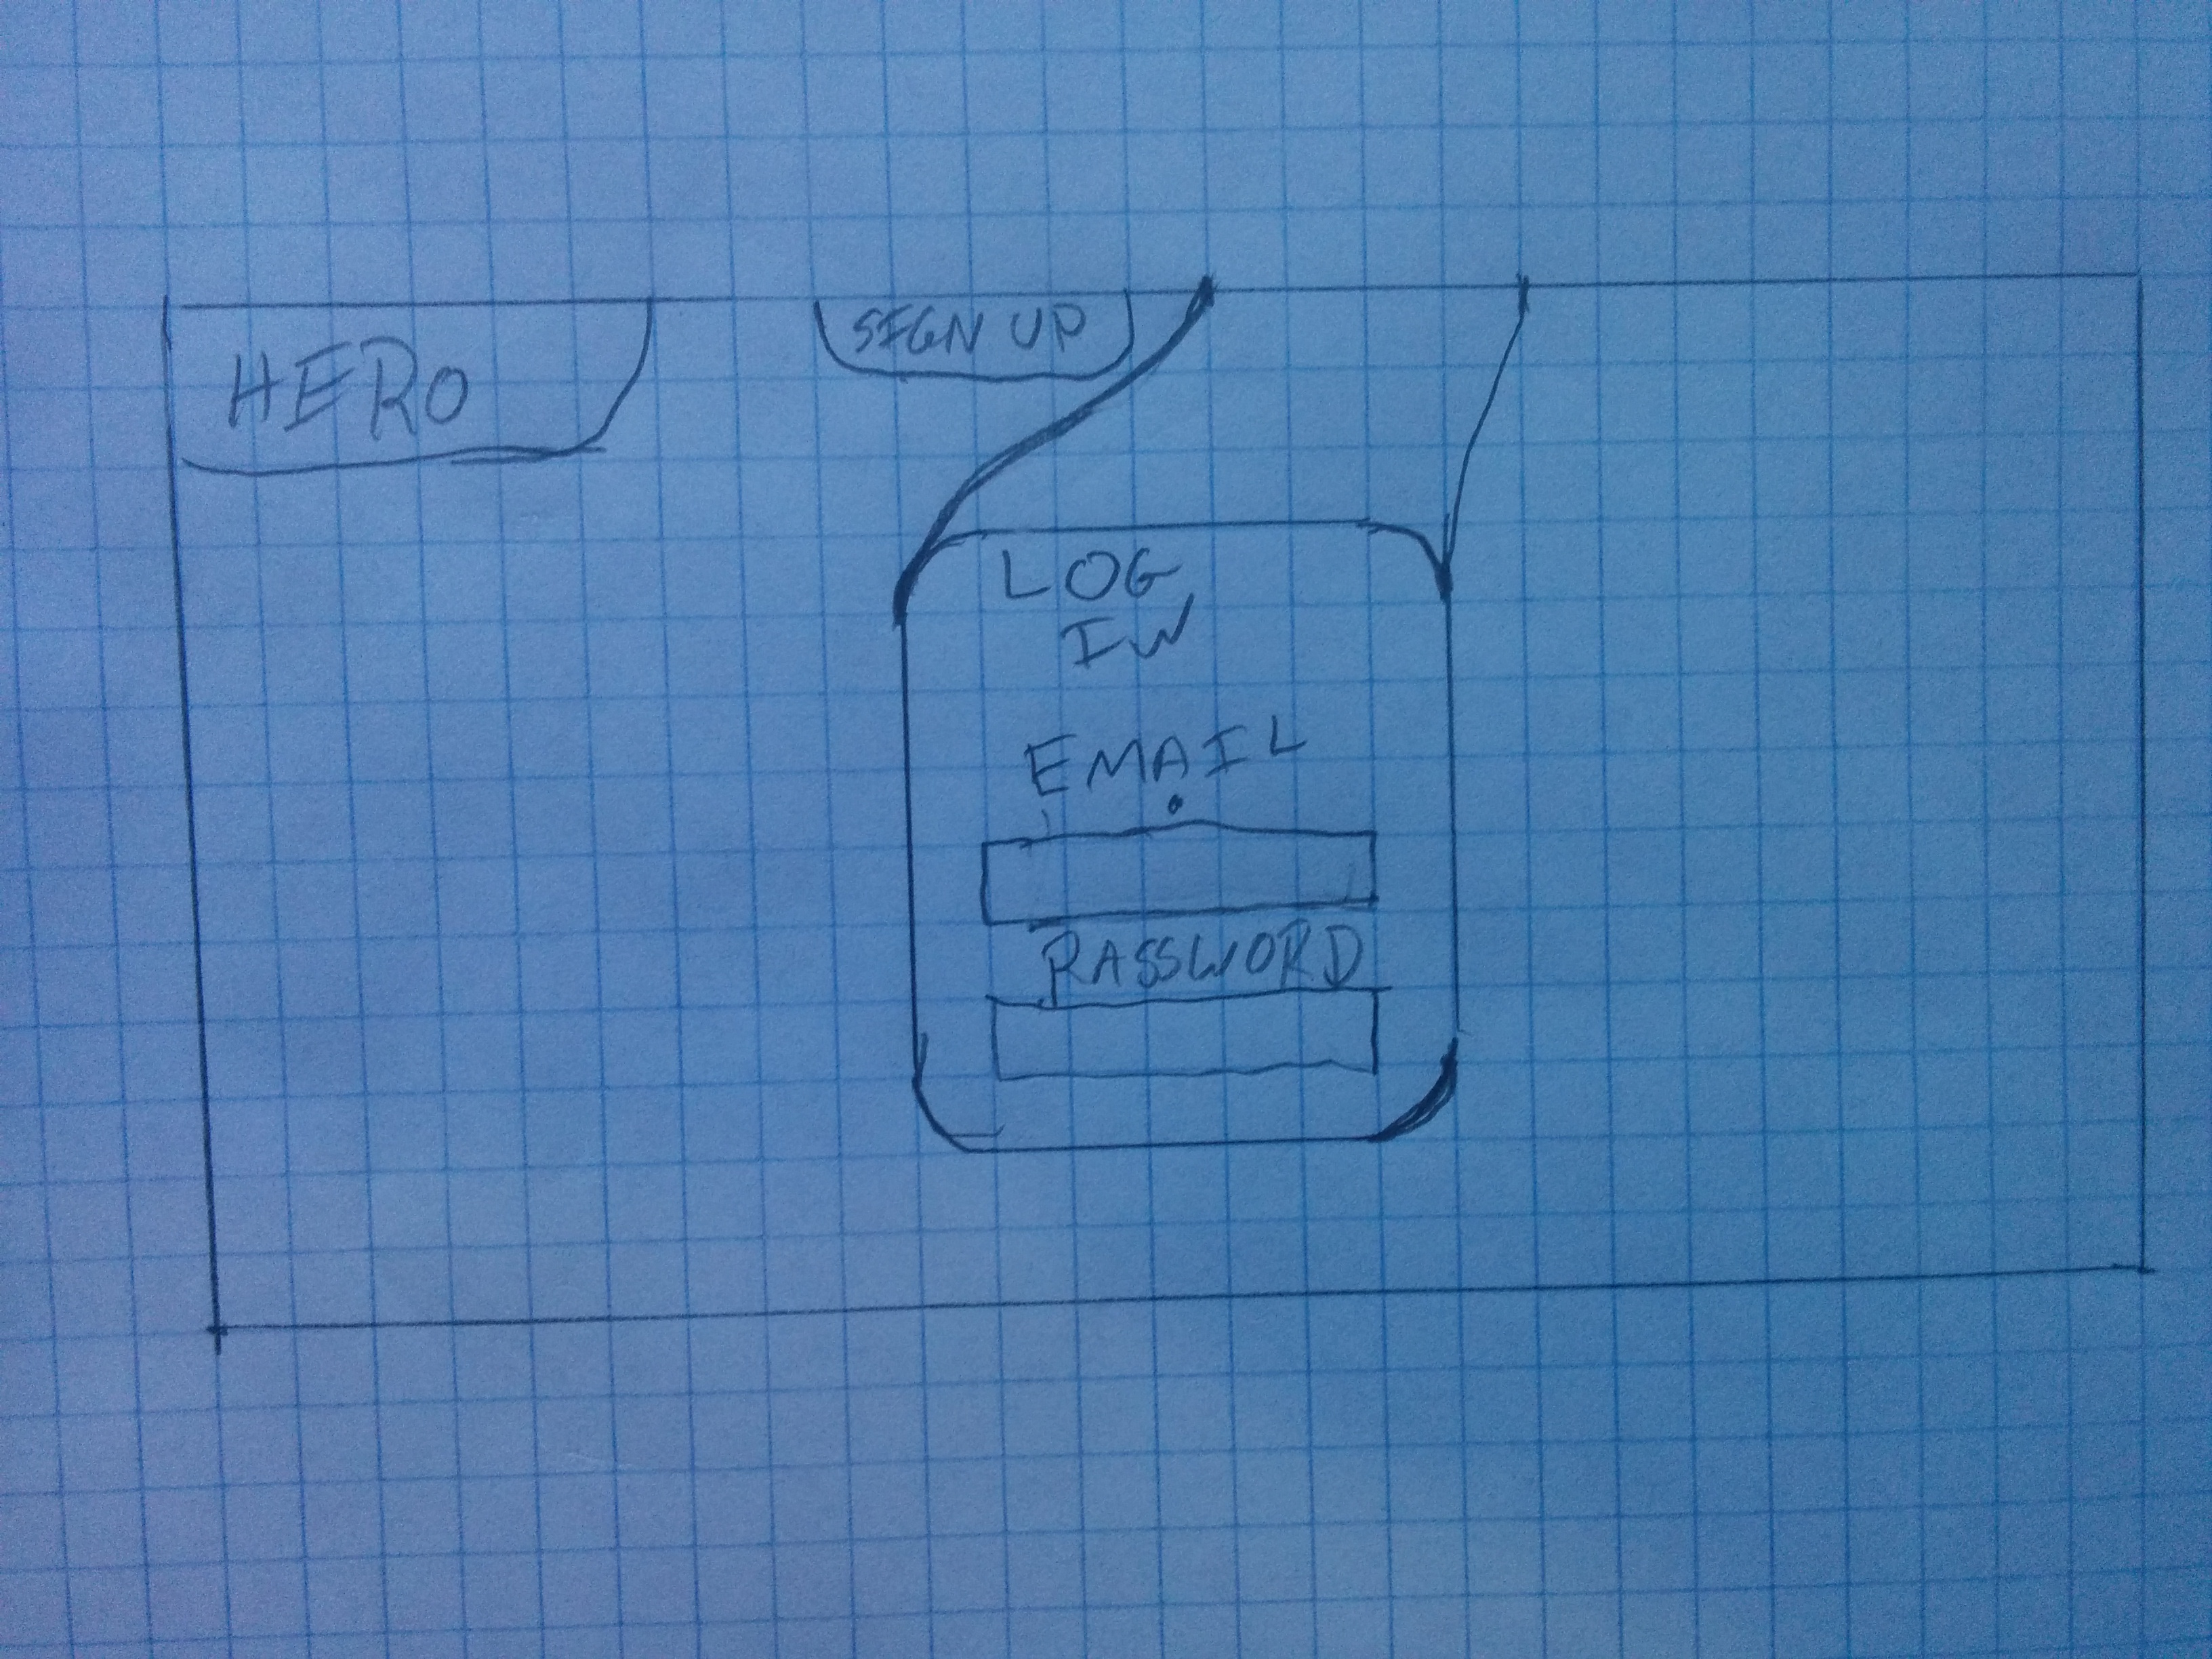 HERO
SIGN UP
LOG
IN
EMAIL
PASSWORD